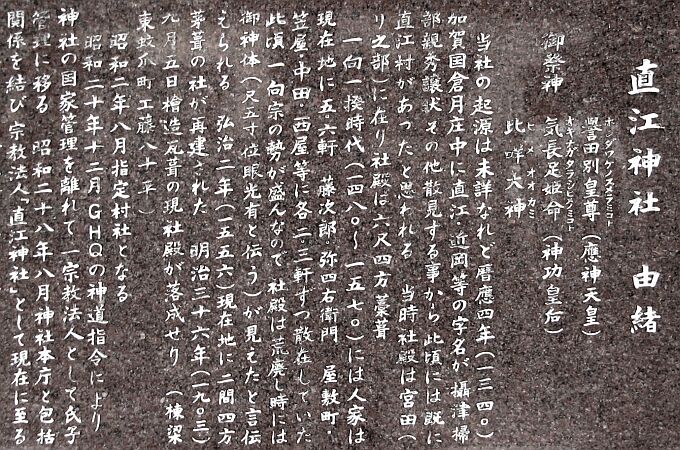 直江神社 由緒
御祭神
ホンダワケノスメラミコト
誉田別皇尊(應神天皇)
オキナガタラシヒメノミコト
気長足姫命(神功皇后)
ヒメオオカミ
比咩大神
当社の起源は未詳なれど暦應四年(一三四〇)
加賀国倉月庄中に直江、近岡等の字名が攝津掃
部親秀譲状その他散見する事から此頃には既に
直江村があったと思われる 当時社殿は宮田(
リ之部)に在り社殿は六尺四方藁葺
一向一揆時代(一四八〇〜一五七〇)には人家は
現在地に五・六軒 藤次郎・弥四右衛門 屋敷町・
笠屋・中田・西屋等に各二・三軒ずつ散在していた
此頃一向宗の勢が盛んなので 社殿は荒廃し時には
御神体(尺五寸位眼光有と伝う)が見てたと言伝
えられる 弘治二年(一五五六)現在地に二間四方
茅葺の社が再建された 明治三十六年(一九〇三)
九月五日檜造瓦葺の現社殿が落成せり (棟梁
東蚊爪町工藤八十平)
昭和二年八月指定村社となる
昭和二十年十二月GHQの神道指令により
神社の国家管理を離れて一宗教法人として氏子
管理に移る 昭和二十八年八月神社本庁と包括
関係を結び宗教法人「直江神社」として現在に至る